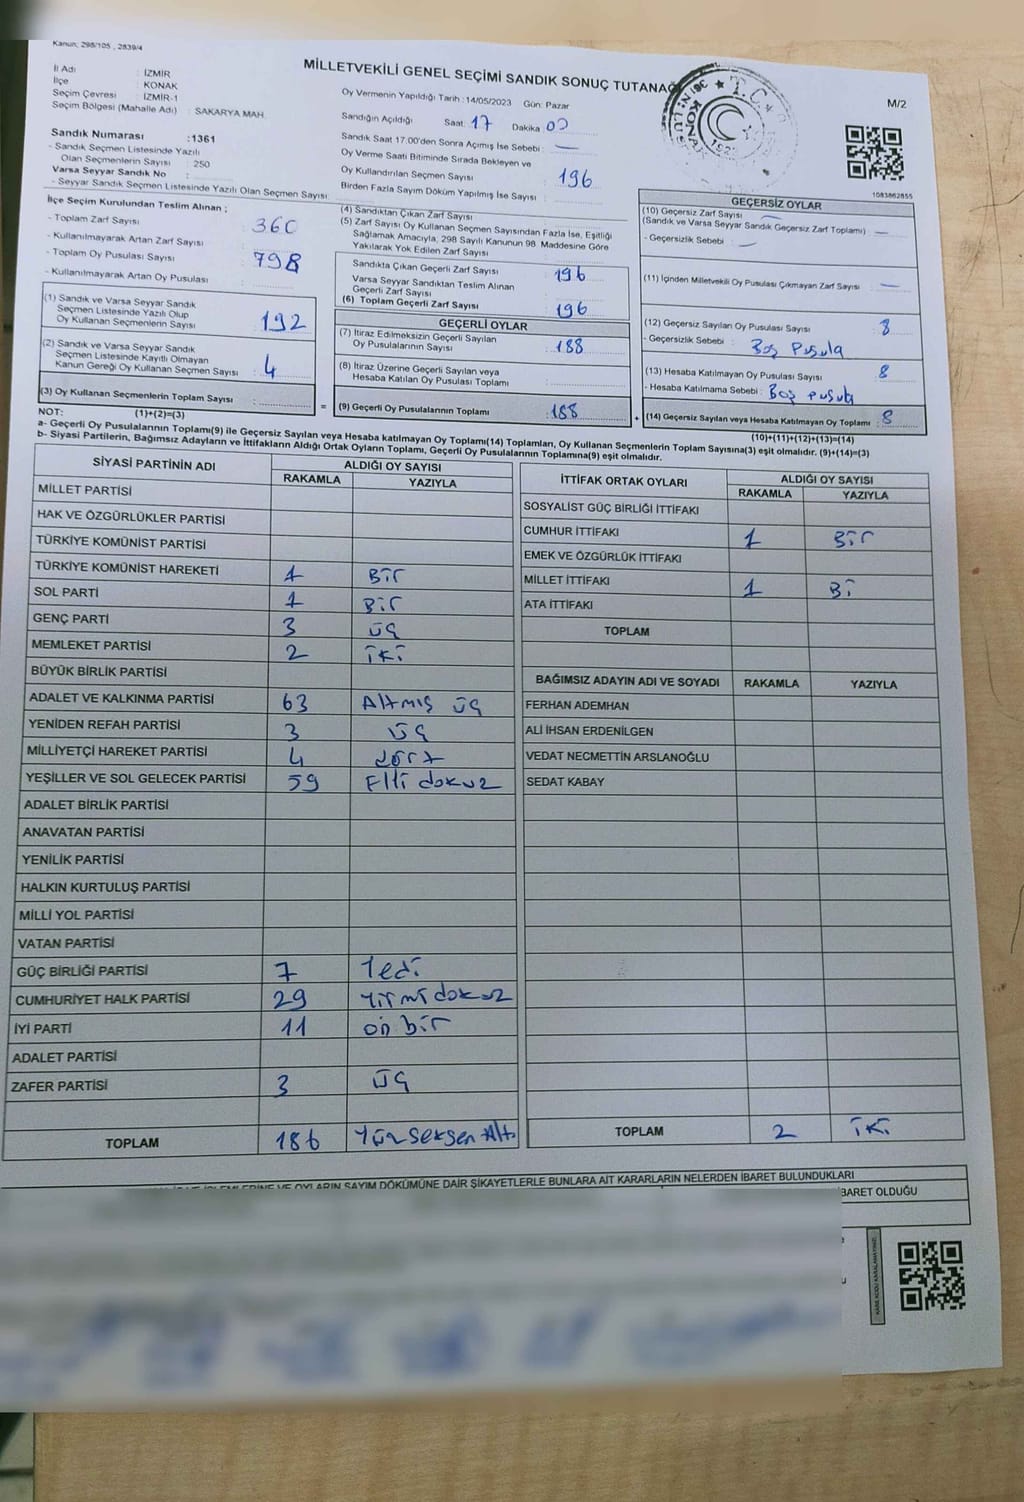 Kanun; 298/105 , 2839/4
MİLLETVEKİLİ GENEL SEÇİMİ SANDIK SONUÇ TUTANAĞI
M/2
İl Adı : İZMİR
İlçe : KONAK
Seçim Çevresi : İZMİR-1
Seçim Bölgesi (Mahalle Adı) : SAKARYA MAH.
Sandık Numarası : 1361
- Sandık Seçmen Listesinde Yazılı
Olan Seçmenlerin Sayısı : 250
Varsa Seyyar Sandık No :
- Seyyar Sandık Seçmen Listesinde Yazılı Olan Seçmen Sayısı :
Oy Vermenin Yapıldığı Tarih : 14/05/2023 Gün: Pazar
Sandığın Açıldığı Saat: 17 Dakika 00
Sandık Saat 17.00'den Sonra Açılmış İse Sebebi : —
Oy Verme Saati Bitiminde Sırada Bekleyen ve
Oy Kullandırılan Seçmen Sayısı : 196
Birden Fazla Sayım Döküm Yapılmış İse Sayısı :
1083862855
İlçe Seçim Kurulundan Teslim Alınan ;
- Toplam Zarf Sayısı : 360
- Kullanılmayarak Artan Zarf Sayısı :
- Toplam Oy Pusulası Sayısı : 798
- Kullanılmayarak Artan Oy Pusulası :
(1) Sandık ve Varsa Seyyar Sandık
Seçmen Listesinde Yazılı Olup
Oy Kullanan Seçmenlerin Sayısı : 192
(2) Sandık ve Varsa Seyyar Sandık
Seçmen Listesinde Kayıtlı Olmayan
Kanun Gereği Oy Kullanan Seçmen Sayısı : 4
(3) Oy Kullanan Seçmenlerin Toplam Sayısı :
(4) Sandıktan Çıkan Zarf Sayısı :
(5) Zarf Sayısı Oy Kullanan Seçmen Sayısından Fazla İse, Eşitliği
Sağlamak Amacıyla, 298 Sayılı Kanunun 98. Maddesine Göre
Yakılarak Yok Edilen Zarf Sayısı :
Sandıkta Çıkan Geçerli Zarf Sayısı : 196
Varsa Seyyar Sandıktan Teslim Alınan
Geçerli Zarf Sayısı :
(6) Toplam Geçerli Zarf Sayısı : 196
GEÇERLİ OYLAR
(7) İtiraz Edilmeksizin Geçerli Sayılan
Oy Pusulalarının Sayısı : 188
(8) İtiraz Üzerine Geçerli Sayılan veya
Hesaba Katılan Oy Pusulası Toplamı :
= (9) Geçerli Oy Pusulalarının Toplamı : 188
GEÇERSİZ OYLAR
(10) Geçersiz Zarf Sayısı —
(Sandık ve Varsa Seyyar Sandık Geçersiz Zarf Toplamı) : —
- Geçersizlik Sebebi : —
(11) İçinden Milletvekili Oy Pusulası Çıkmayan Zarf Sayısı : —
(12) Geçersiz Sayılan Oy Pusulası Sayısı : 8
- Geçersizlik Sebebi : Boş Pusula
(13) Hesaba Katılmayan Oy Pusulası Sayısı : 8
- Hesaba Katılmama Sebebi : Boş pusula
+ (14) Geçersiz Sayılan veya Hesaba Katılmayan Oy Toplamı : 8
NOT: (1)+(2)=(3) (10)+(11)+(12)+(13)=(14)
a- Geçerli Oy Pusulalarının Toplamı(9) ile Geçersiz Sayılan veya Hesaba katılmayan Oy Toplamı(14) Toplamları, Oy Kullanan Seçmenlerin Toplam Sayısına(3) eşit olmalıdır. (9)+(14)=(3)
b- Siyasi Partilerin, Bağımsız Adayların ve İttifakların Aldığı Ortak Oyların Toplamı, Geçerli Oy Pusulalarının Toplamına(9) eşit olmalıdır.
SİYASİ PARTİNİN ADI ALDIĞI OY SAYISI
RAKAMLA YAZIYLA
MİLLET PARTİSİ
HAK VE ÖZGÜRLÜKLER PARTİSİ
TÜRKİYE KOMÜNİST PARTİSİ
TÜRKİYE KOMÜNİST HAREKETİ 1 Bir
SOL PARTİ 1 Bir
GENÇ PARTİ 3 üç
MEMLEKET PARTİSİ 2 iki
BÜYÜK BİRLİK PARTİSİ
ADALET VE KALKINMA PARTİSİ 63 Altmış üç
YENİDEN REFAH PARTİSİ 3 üç
MİLLİYETÇİ HAREKET PARTİSİ 4 dört
YEŞİLLER VE SOL GELECEK PARTİSİ 59 Elli dokuz
ADALET BİRLİK PARTİSİ
ANAVATAN PARTİSİ
YENİLİK PARTİSİ
HALKIN KURTULUŞ PARTİSİ
MİLLİ YOL PARTİSİ
VATAN PARTİSİ
GÜÇ BİRLİĞİ PARTİSİ 7 Yedi
CUMHURİYET HALK PARTİSİ 29 Yirmi dokuz
İYİ PARTİ 11 on bir
ADALET PARTİSİ
ZAFER PARTİSİ 3 üç
TOPLAM 186 Yüz seksen Altı
İTTİFAK ORTAK OYLARI ALDIĞI OY SAYISI
RAKAMLA YAZIYLA
SOSYALİST GÜÇ BİRLİĞİ İTTİFAKI
CUMHUR İTTİFAKI 1 Bir
EMEK VE ÖZGÜRLÜK İTTİFAKI
MİLLET İTTİFAKI 1 Bi
ATA İTTİFAKI
TOPLAM
BAĞIMSIZ ADAYIN ADI VE SOYADI RAKAMLA YAZIYLA
FERHAN ADEMHAN
ALİ İHSAN ERDENİLGEN
VEDAT NECMETTİN ARSLANOĞLU
SEDAT KABAY
TOPLAM 2 iki
OYLARIN SAYIM DÖKÜMÜNE DAİR ŞİKAYETLERLE BUNLARA AİT KARARLARIN NELERDEN İBARET BULUNDUKLARI
İBARET OLDUĞU